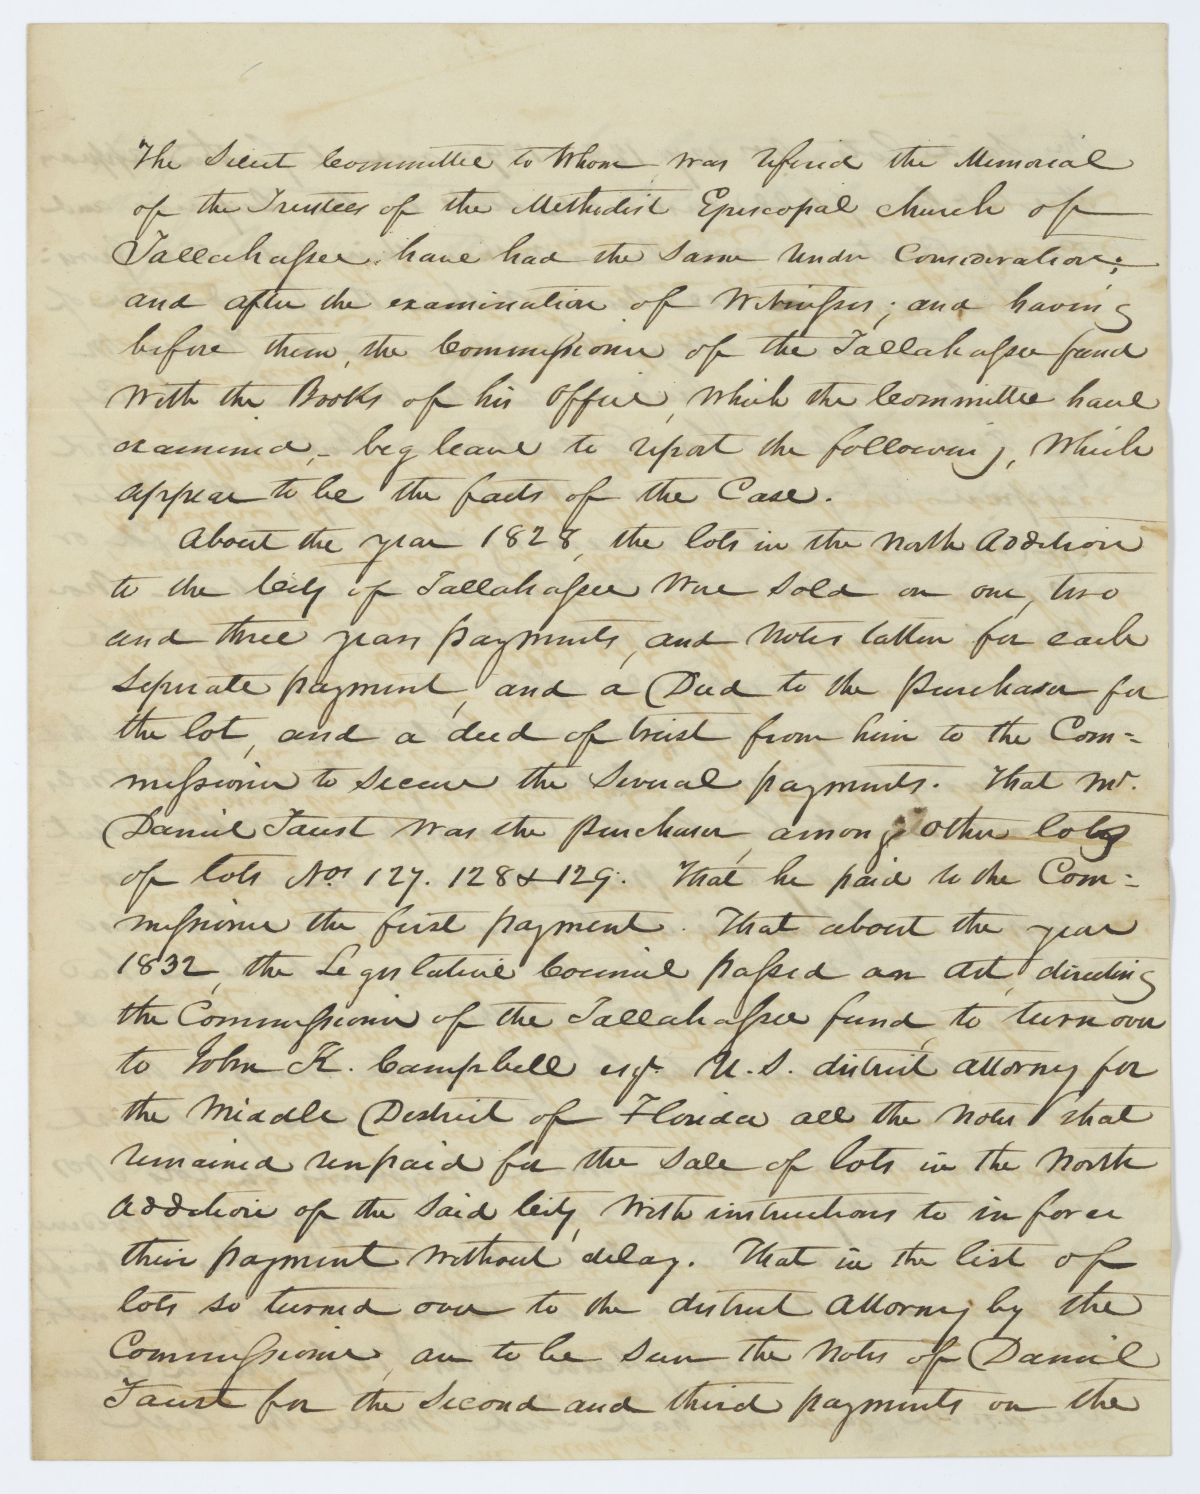 The Select Committee to Whom was refered the Memorial
of the Trustees of the Methodist Episcopal church of
Tallahassee, have had the same under Consideration;
and after the examination of Witnesses; and having
before them, the Commissioner of the Tallahassee fund
with the Books of his office, which the Committee have
examined, - beg leave to report the following, Which
appear to be the facts of the Case.
About the year 1828, the lots in the North Addition
to the City of Tallahassee were sold on one, two
and three years payments, and notes taken for each
seperate payment, and a Deed to the purchaser for
the lot, and a deed of trust from him to the Com=
missioner to secure the several payments. That Mr.
Daniel Faust was the purchaser, among other lots
of lots Nos 127. 128 & 129. That he paid to the Com=
missioner the first payment. That about the year
1832, the Legislative Council passed an Act, directing
the Commissioner of the Tallahassee fund, to turn over
to John K. Campbell esqr. U.S. district attorney for
the Middle District of Florida all the notes that
remained unpaid for the sale of lots in the North
Addition of the said City, with instructions to inforce
their payment without delay. That in the list of
lots so turned over to the district Attorney by the
Commissioner, are to be seen the notes of Daniel
Faust for the second and third payments on the